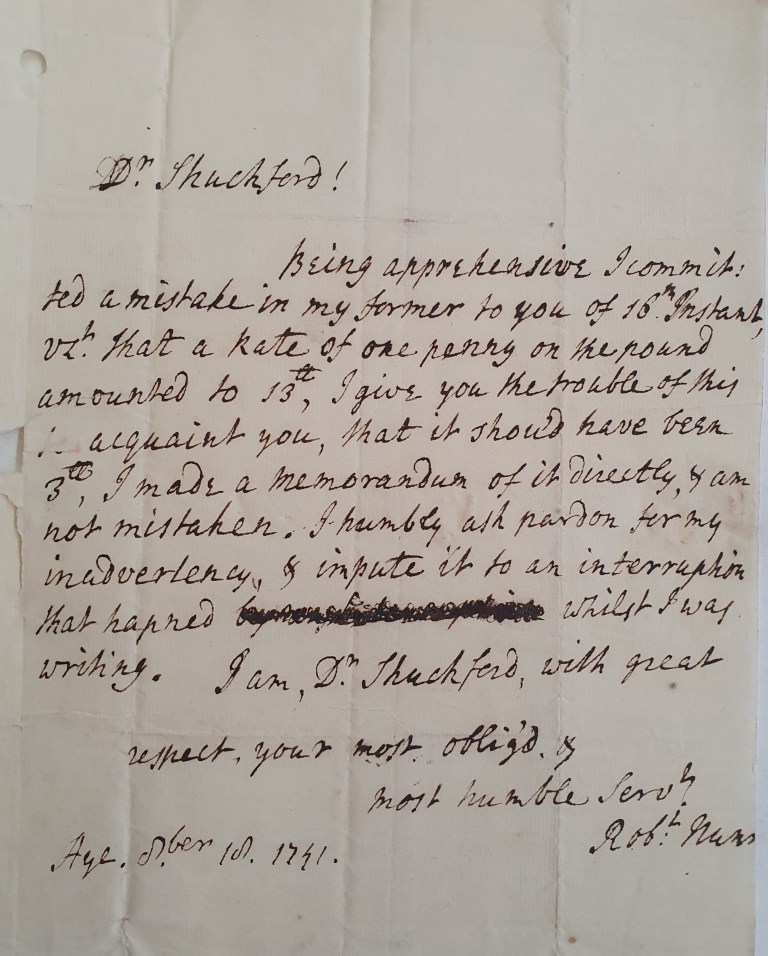 Dr. Shuckford!
Being apprehensive I commit:
ted a mistake in my former to you of 16th Instant,
vzt. that a Rate of one penny on the pound
amounted to 13tt, I give you the trouble of this
acquaint you, that it should have been
3tt, I made a memorandum of it directly, & am
not mistaken. I humbly ask pardon for my
inadvertency, & impute it to an interruption
that hapned whilst I was
writing. I am, Dr. Shuckford, with great
respect, your most oblig'd &
most humble Servt.
Robt.
Aye. 8ber 18. 1741.